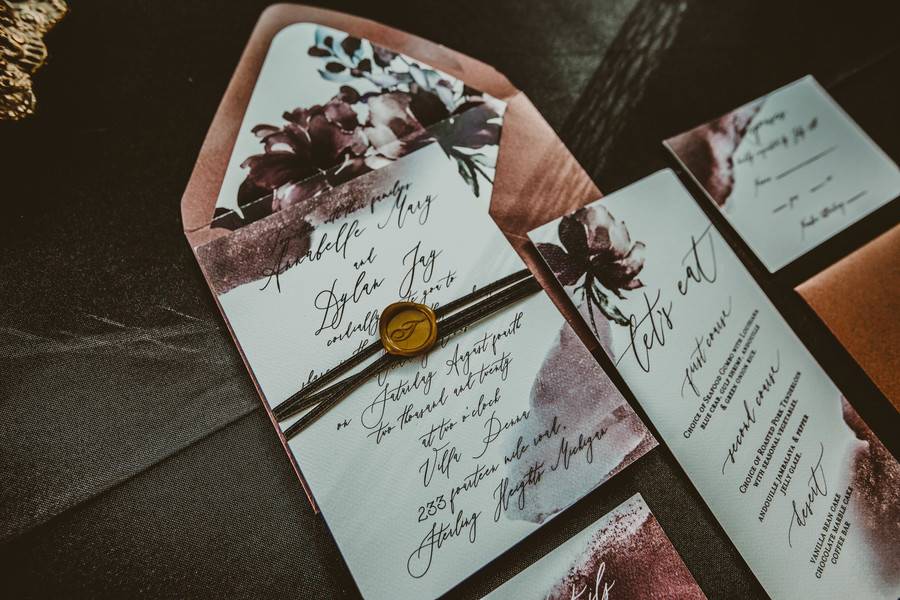 with their familys
Annabelle Mary
and
Dylan Jay
cordially you to
on Saturday August fourth
two thousand and twenty
at two o'clock
Villa Denna
233 fourteen mile road,
Sterling Heights Michigan
let's eat
first course
Choice of Seafood Gumbo with Louisiana
blue crab, gulf shrimp, andouille
& green onion rice.
second course
Choice of Roasted Pork Tenderloin
with seasonal vegetables.
andouille jambalaya & pepper
jelly glaze.
desert
vanilla bean cake
chocolate marble cake
coffee bar